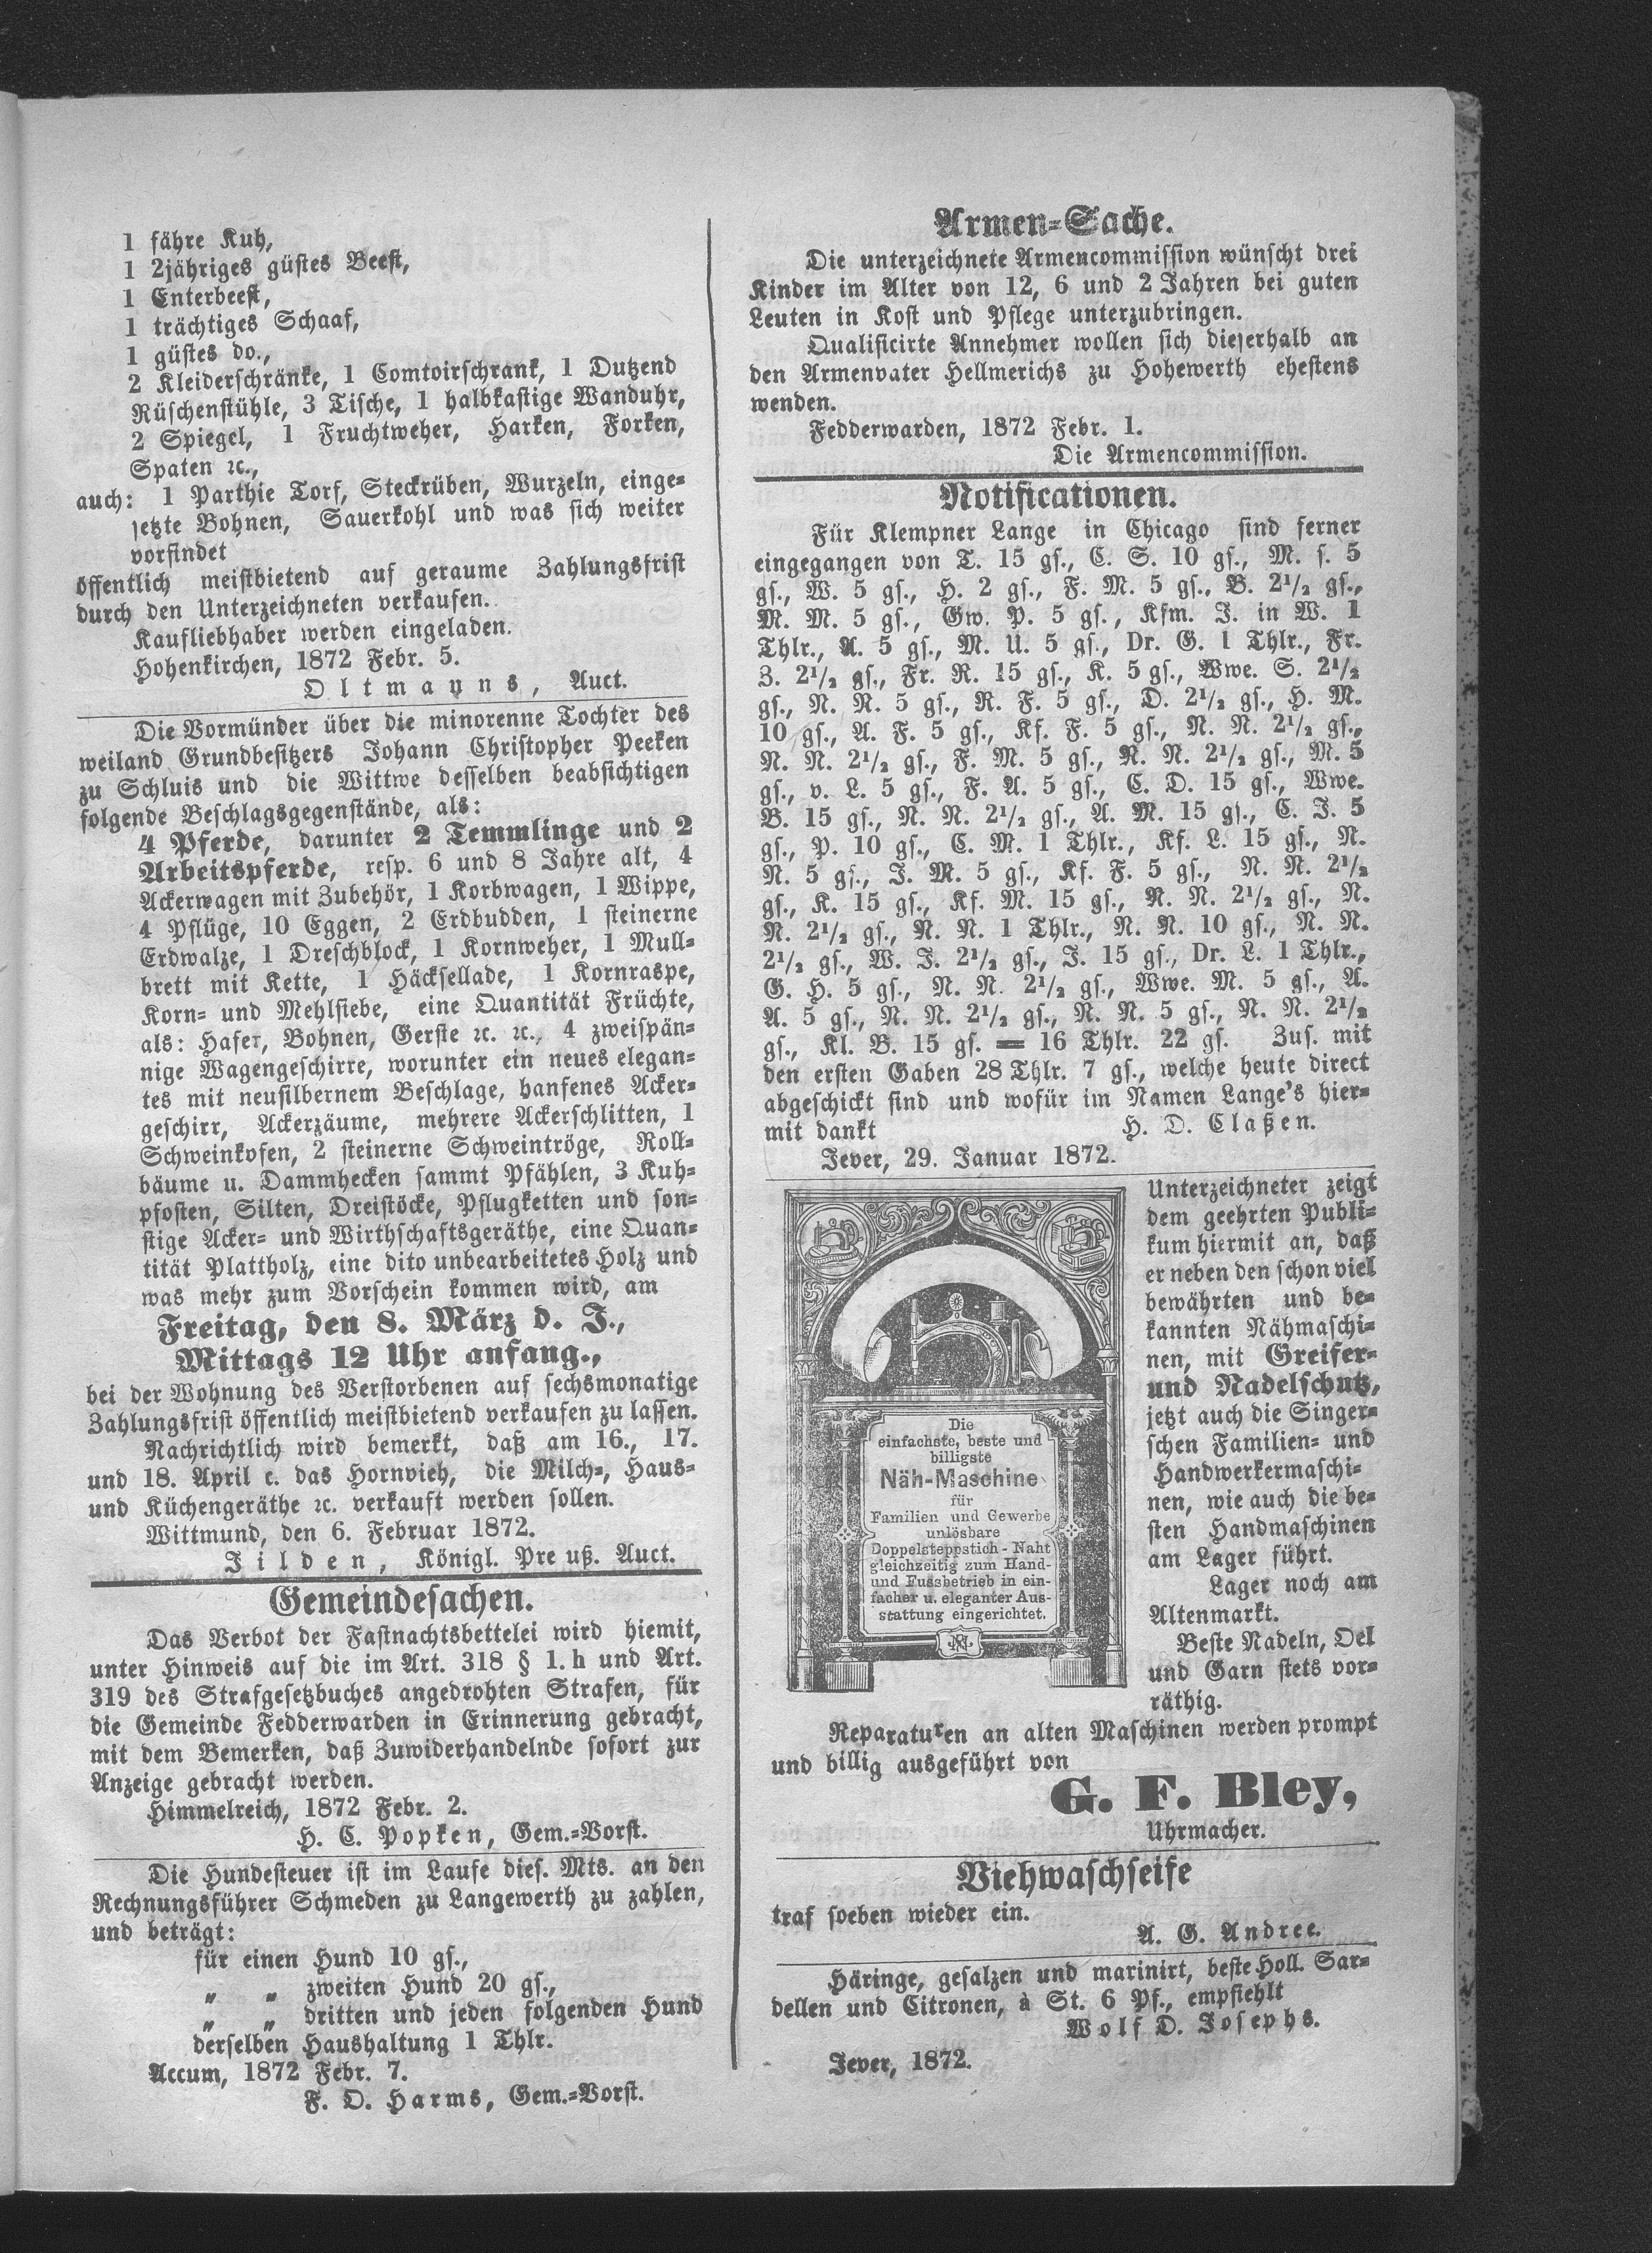 1 fähre Kuh,
1 2jähriges güstes Beest,
1 Enterbeest,
1 trächtiges Schaaf,
1 güstes do.,
2 Kleiderschränke, 1 Comtoirschrank, 1 Dutzend
Rüschenstühle, 3 Tische, 1 halbkastige Wanduhr,
2 Spiegel, 1 Fruchtweher, Harken, Forken,
Spaten ꝛc.,
auch: 1 Parthie Torf, Steckrüben, Wurzeln, einge-
setzte Bohnen, Sauerkohl und was sich weiter
vorfindet
öffentlich meistbietend auf geraume Zahlungsfrist
durch den Unterzeichneten verkaufen.
Kaufliebhaber werden eingeladen.
Hohenkirchen, 1872 Febr. 5.
Oltmanns, Auct.
Die Vormünder über die minorenne Tochter des
weiland Grundbesitzers Johann Christopher Peeken
zu Schluis und die Wittwe desselben beabsichtigen
folgende Beschlagsgegenstände, als:
4 Pferde, darunter 2 Temmlinge und 2
Arbeitspferde, resp. 6 und 8 Jahre alt, 4
Ackerwagen mit Zubehör, 1 Korbwagen, 1 Wippe,
4 Pflüge, 10 Eggen, 2 Erdbudden, 1 steinerne
Erdwalze, 1 Dreschblock, 1 Kornweher, 1 Mull-
brett mit Kette, 1 Häcksellade, 1 Kornraspe,
Korn- und Mehlsiebe, eine Quantität Früchte,
als: Hafer, Bohnen, Gerste ꝛc. ꝛc., 4 zweispän-
nige Wagengeschirre, worunter ein neues elegan-
tes mit neusilbernem Beschlage, hanfenes Acker-
geschirr, Ackerzäume, mehrere Ackerschlitten, 1
Schweinkofen, 2 steinerne Schweintröge, Roll-
bäume u. Dammhecken sammt Pfählen, 3 Kuh-
pfosten, Silten, Dreistöcke, Pflugketten und son-
stige Acker- und Wirthschaftsgeräthe, eine Quan-
tität Plattholz, eine dito unbearbeitetes Holz und
was mehr zum Vorschein kommen wird, am
Freitag, den 8. März d. J.,
Mittags 12 Uhr anfang.,
bei der Wohnung des Verstorbenen auf sechsmonatige
Zahlungsfrist öffentlich meistbietend verkaufen zu lassen.
Nachrichtlich wird bemerkt, daß am 16., 17.
und 18. April c. das Hornvieh, die Milch-, Haus-
und Küchengeräthe ꝛc. verkauft werden sollen.
Wittmund, den 6. Februar 1872.
Jilden, Königl. Preuß. Auct.
Gemeindesachen.
Das Verbot der Fastnachtsbettelei wird hiemit,
unter Hinweis auf die im Art. 318 § 1. h und Art.
319 des Strafgesetzbuches angedrohten Strafen, für
die Gemeinde Fedderwarden in Erinnerung gebracht,
mit dem Bemerken, daß Zuwiderhandelnde sofort zur
Anzeige gebracht werden.
Himmelreich, 1872 Febr. 2.
H. C. Popken, Gem.-Vorst.
Die Hundesteuer ist im Laufe dies. Mts. an den
Rechnungsführer Schmeden zu Langewerth zu zahlen,
und beträgt:
für einen Hund 10 gs.,
„ „ zweiten Hund 20 gs.,
„ „ dritten und jeden folgenden Hund
derselben Haushaltung 1 Thlr.
Accum, 1872 Febr. 7.
F. O. Harms, Gem.-Vorst.
Armen-Sache.
Die unterzeichnete Armencommission wünscht drei
Kinder im Alter von 12, 6 und 2 Jahren bei guten
Leuten in Kost und Pflege unterzubringen.
Qualificirte Annehmer wollen sich dieserhalb an
den Armenvater Hellmerichs zu Hohewerth ehestens
wenden.
Fedderwarden, 1872 Febr. 1.
Die Armencommission.
Notificationen.
Für Klempner Lange in Chicago sind ferner
eingegangen von T. 15 gs., C. S. 10 gs., M. s. 5
gs., W. 5 gs., H. 2 gs., F. M. 5 gs., B. 2½ gs.,
M. M. 5 gs., Gw. P. 5 gs., Kfm. J. in W. 1
Thlr., A. 5 gs., M. U. 5 gs., Dr. G. 1 Thlr., Fr.
Z. 2½ gs., Fr. R. 15 gs., K. 5 gs., Wwe. S. 2½
gs., N. N. 5 gs., R. F. 5 gs., D. 2½ gs., H. M.
10 gs., A. F. 5 gs., Kf. F. 5 gs., N. N. 2½ gs.,
N. N. 2½ gs., F. M. 5 gs., R. N. 2½ gs., M. 5
gs., v. L. 5 gs., F. A. 5 gs., C. D. 15 gs., Wwe.
B. 15 gs., N. N. 2½ gs., A. M. 15 gs., C. J. 5
gs., P. 10 gs., C. M. 1 Thlr., Kf. L. 15 gs., N.
N. 5 gs., J. M. 5 gs., Kf. F. 5 gs., N. N. 2½
gs., K. 15 gs., Kf. M. 15 gs., N. N. 2½ gs., N.
N. 2½ gs., N. N. 1 Thlr., N. N. 10 gs., N. N.
2½ gs., W. J. 2½ gs., J. 15 gs., Dr. L. 1 Thlr.,
G. H. 5 gs., N. N. 2½ gs., Wwe. M. 5 gs., A.
A. 5 gs., N. N. 2½ gs., N. N. 5 gs., N. N. 2½
gs., Kl. B. 15 gs. = 16 Thlr. 22 gs. Zus. mit
den ersten Gaben 28 Thlr. 7 gs., welche heute direct
abgeschickt sind und wofür im Namen Lange's hier-
mit dankt H. D. Claßen.
Jever, 29. Januar 1872.
Die
einfachste, beste und
billigste
Näh-Maschine
für
Familien und Gewerbe
unlösbare
Doppelsteppstich-Naht
gleichzeitig zum Hand-
und Fussbetrieb in ein-
facher u. eleganter Aus-
stattung eingerichtet.
Unterzeichneter zeigt
dem geehrten Publi-
kum hiermit an, daß
er neben den schon viel
bewährten und be-
kannten Nähmaschi-
nen, mit Greifer-
und Nadelschutz,
jetzt auch die Singer-
schen Familien- und
Handwerkermaschi-
nen, wie auch die be-
sten Handmaschinen
am Lager führt.
Lager noch am
Altenmarkt.
Beste Nadeln, Oel
und Garn stets vor-
räthig.
Reparaturen an alten Maschinen werden prompt
und billig ausgeführt von
G. F. Bley,
Uhrmacher.
Viehwaschseife
traf soeben wieder ein.
A. G. Andree.
Häringe, gesalzen und marinirt, beste Holl. Sar-
dellen und Citronen, à St. 6 Pf., empfiehlt
Wolf D. Josephs.
Jever, 1872.